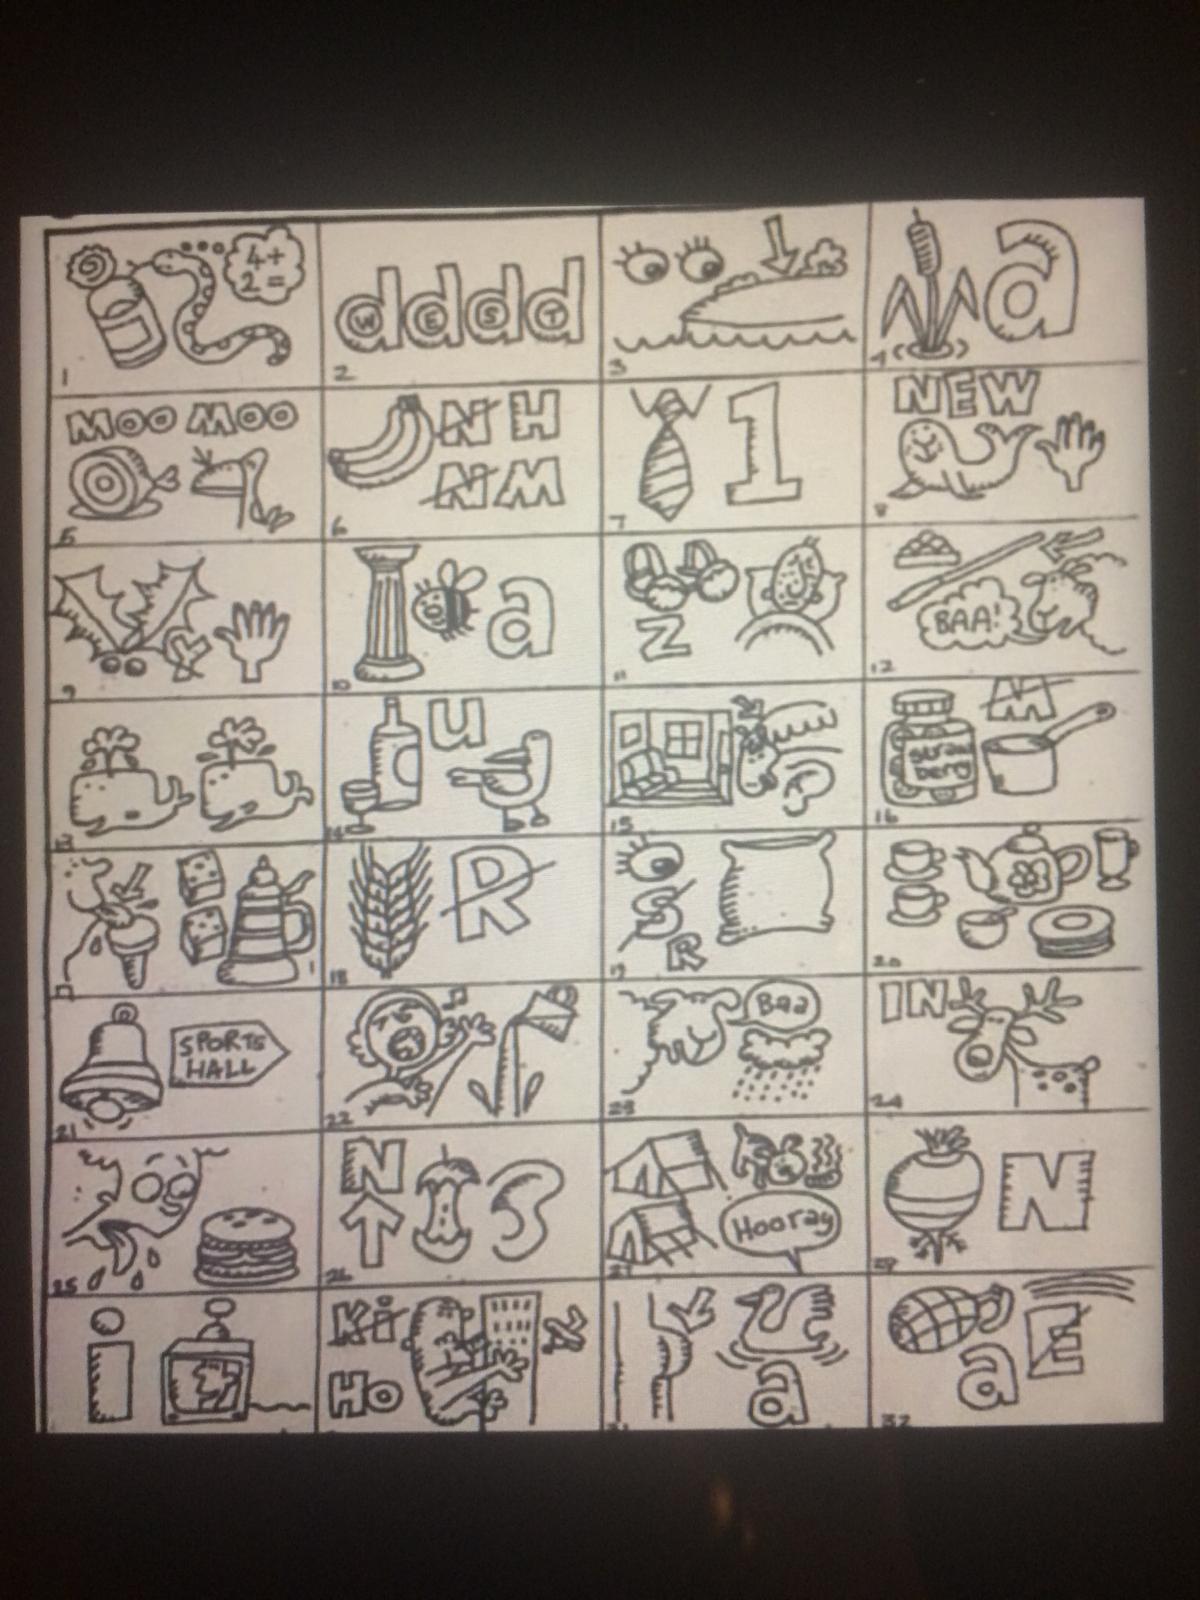 4+
2=
1
d d d d
W E S T
2
3
a
4
MOO MOO
5
N H
N M
6
1
7
NEW
8
9
a
10
Z
11
BAA!
12
13
U
14
15
M
16
R
18
S
R
19
20
SPORTS
HALL
21
22
Baa
23
IN
24
25
N
26
Hooray
27
N
29
i
Ki
Ho
a
31
a E
32